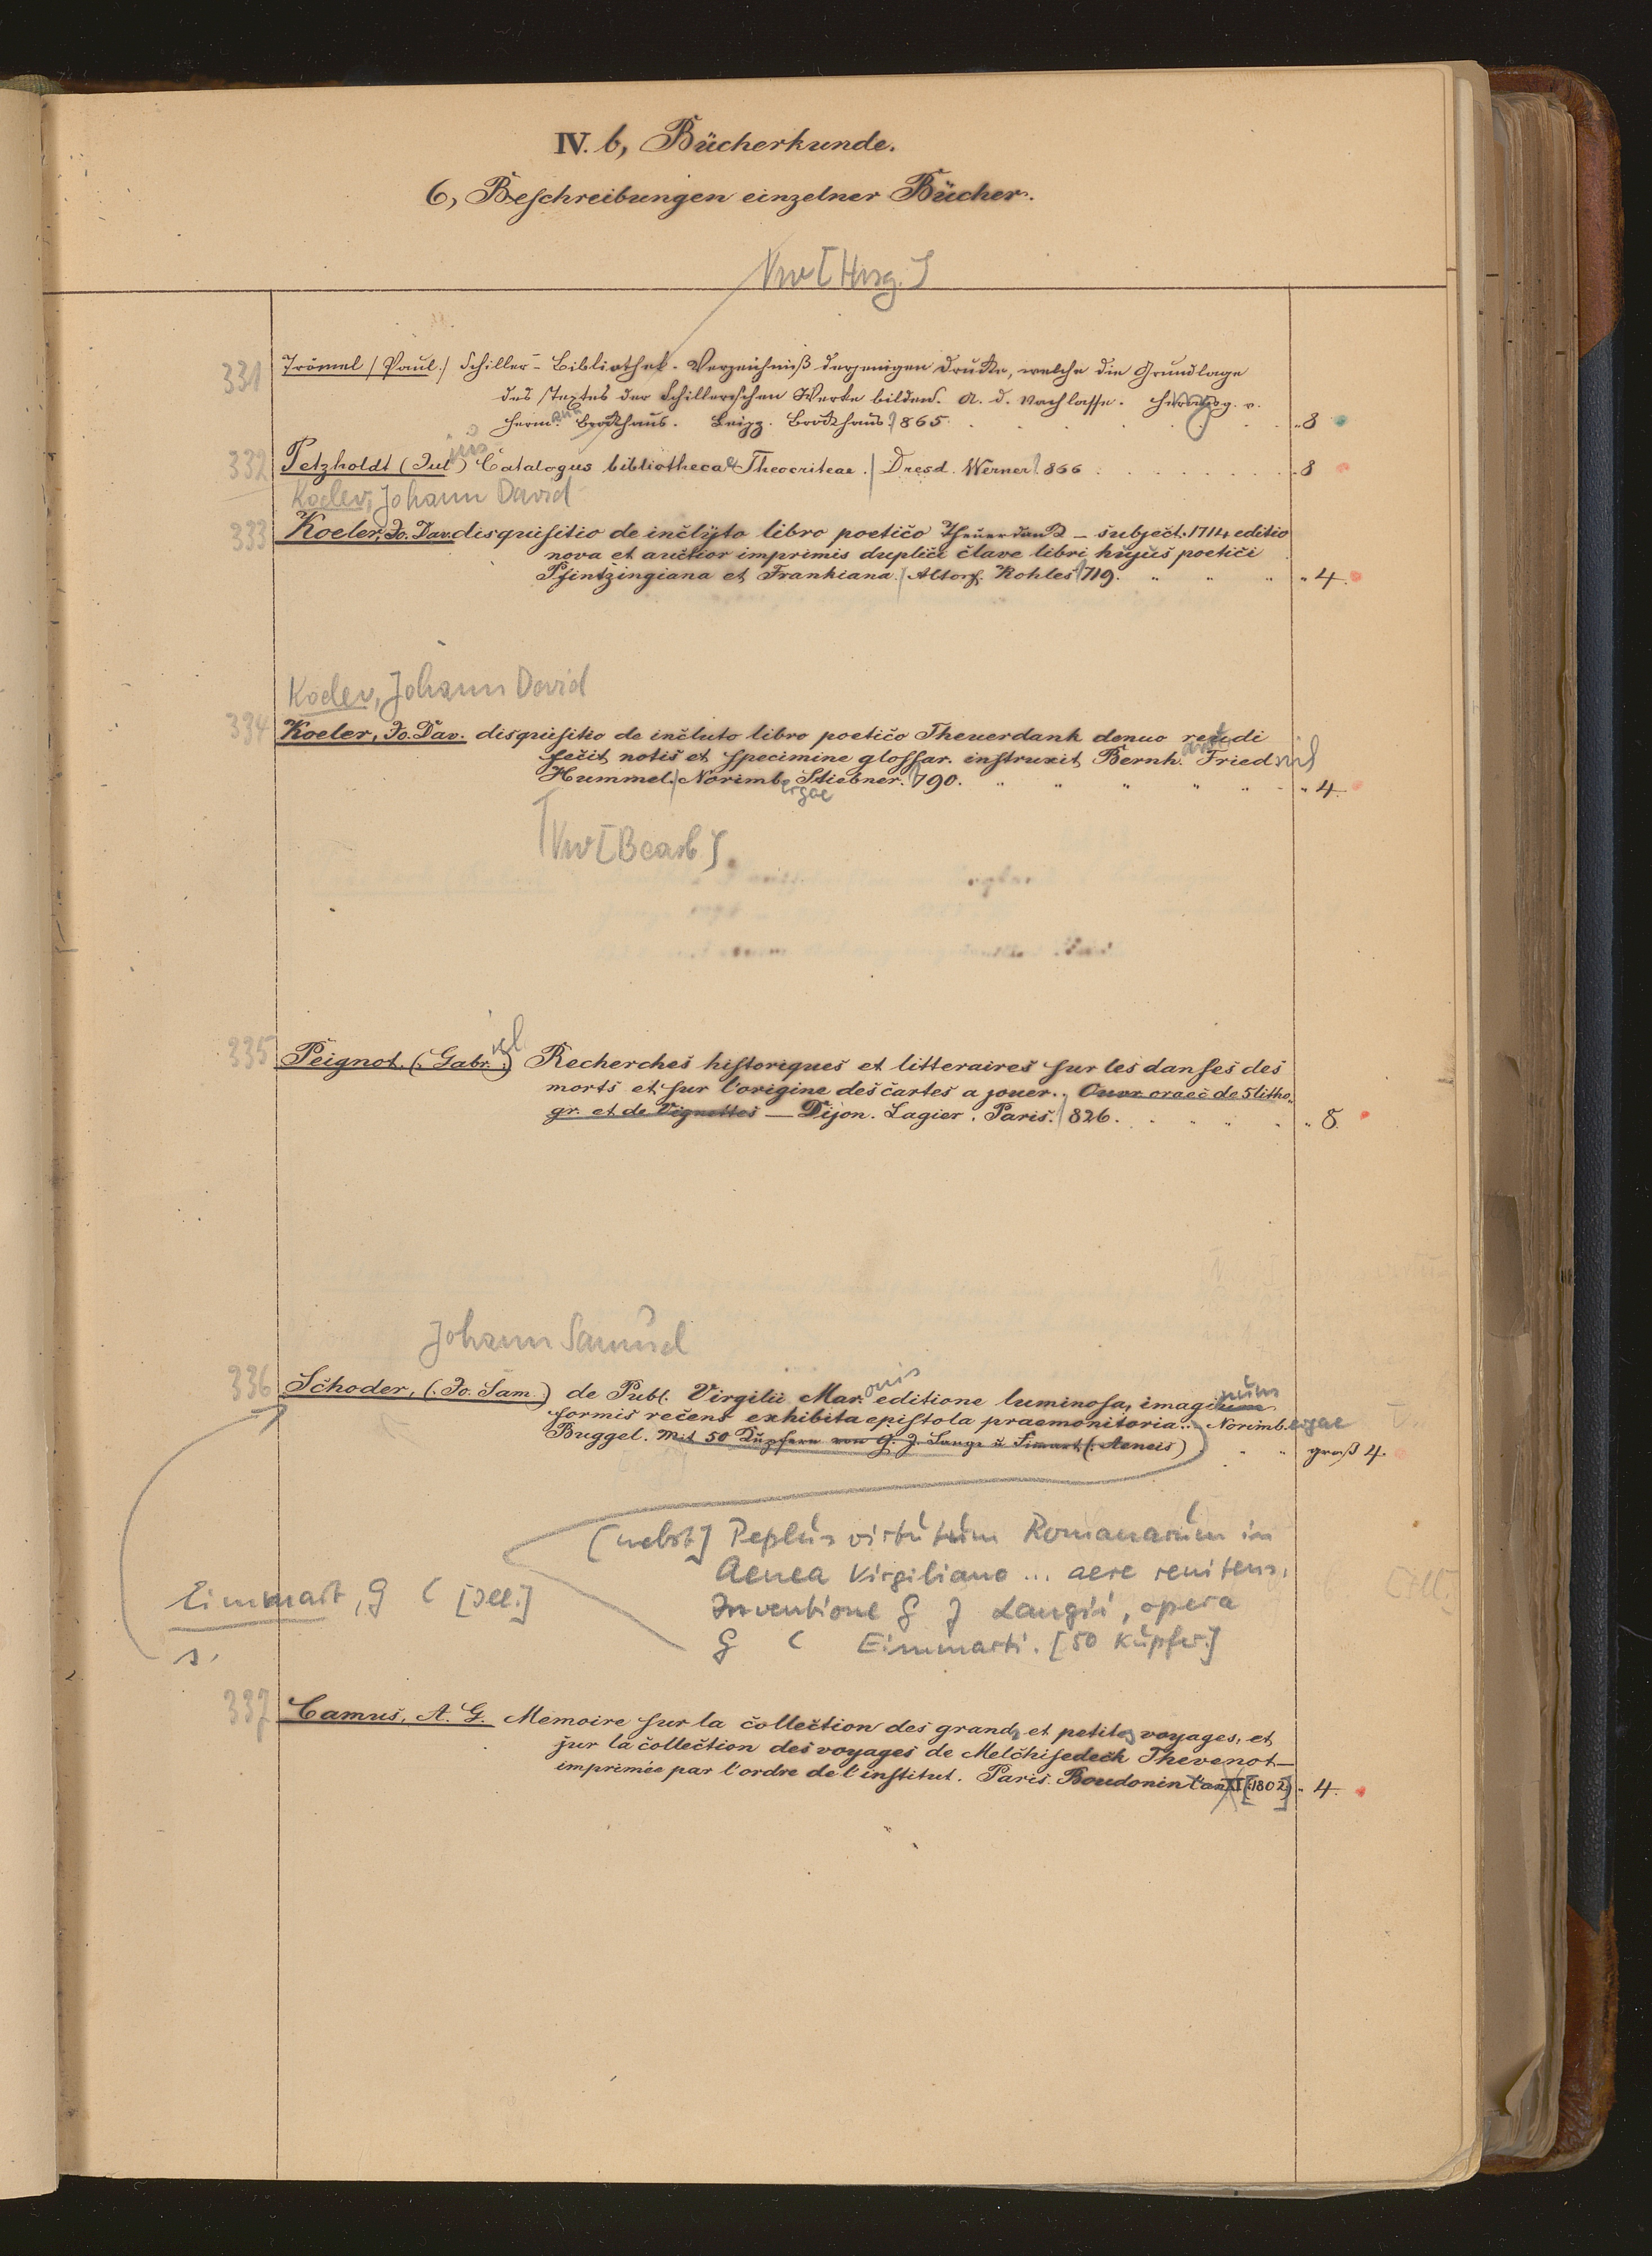 IV. b, Bücherkunde.
6, Beschreibungen einzelner Bücher.
Vw [Hrsg.]
331 Trömel (Paul.) Schiller-Bibliothek. Verzeichniß derjenigen Drucke, welche die Grundlage
des Textes der Schillerschen Werke bilden. A. d. Nachlasse. v.
Herm. ann Brockhaus. Leipz. Brockhaus. 865. " 8
332 Petzholdt (Jul ius) Catalogus bibliothecae Theocriteae. Dresd. Werner 866 " 8
Koeler, Johann David
333 Koeler, Jo. Dav. disquisitio de inclyto libro poetico Theuerdanck – subject. 1714 editio
nova et auctior imprimis duplici clave libri hujus poetici
Pfintzingiana et Frankiana. Altorf. Kohles 719. " 4.
Koeler, Johann David
334 Koeler, Jo. Dav. disquisitio de incluto libro poetico Theuerdank denuo recudi
fecit notis et specimine glossar. instruxit Bernh. ard Fried rich
Hummel. Norimb. ergae Stiebner. 790. " 4.
Vw [Bearb].
335 Peignot. (Gabr. iel) Recherches historiques et litteraires sur les danses des
morts et sur l'origine des cartes a jouer. Ouvr. oraec de 5 litho-
gr. et de Vignettes — Dijon. Lagier. Paris. 826. " 8.
Johann Samuel
336 Schoder, (Jo. Sam.) de Publ. Virgilii Mar. onis editione luminosa, imaginum
formis recens exhibita epistola praemonitoria. Norimb. ergae
Buggel. Mit 50 Kupfern von G. J. Lange u Eimart (Aeneis) groß 4.
[nebst] Peplus virtutum Romanarum in
Aenea Virgiliano ... aere renitens,
Inventione G J Langii, opera
G C Eimmarti. [50 Kupfer.]
Eimmart, G C [Ill.]
s.
337 Camus, A. G. Memoire sur la collection des grands et petites voyages, et
sur la collection des voyages de Melchisedech Thevenot—
imprimée par l'ordre de l'institut. Paris. Boudonin l'an XI [1802] " 4.